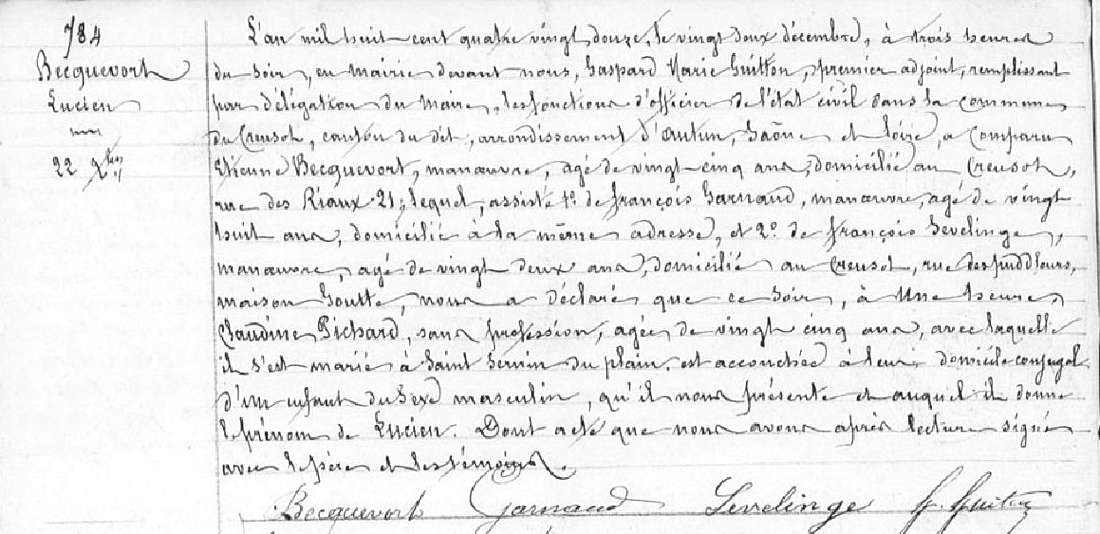 784
Becquevort
Lucien
22 Xbre
L'an mil huit cent quatre vingt douze, le vingt deux décembre, à trois heures
du soir, en mairie devant nous, Gaspard Marie Guitton, premier adjoint, remplissant
par délégation du Maire, les fonctions d'officier de l'état civil dans la commune
du Creusot, canton du dit, arrondissement d'Autun, Saône et Loire, a comparu
Etienne Becquevort, manœuvre, agé de vingt-cinq ans, domicilié au Creusot,
rue des Riaux 21; lequel, assisté 1º de François Garnaud, manœuvre, agé de vingt
huit ans, domicilié à la même adresse, et 2º de François Sevelinge,
manœuvre, agé de vingt deux ans, domicilié au Creusot, rue des puddleurs,
maison Goutte, nous a déclaré que ce soir, à une heure,
Claudine Pichard, sans profession, agée de vingt cinq ans, avec laquelle
il s'est marié à Saint Sernin du plain, est accouchée à leur domicile conjugal
d'un enfant du sexe masculin, qu'il nous présente et auquel il donne
le prénom de Lucien. Dont acte que nous avons après lecture signé
avec le père et les témoins.
Becquevort Garnaud Sevelinge G. Guitton